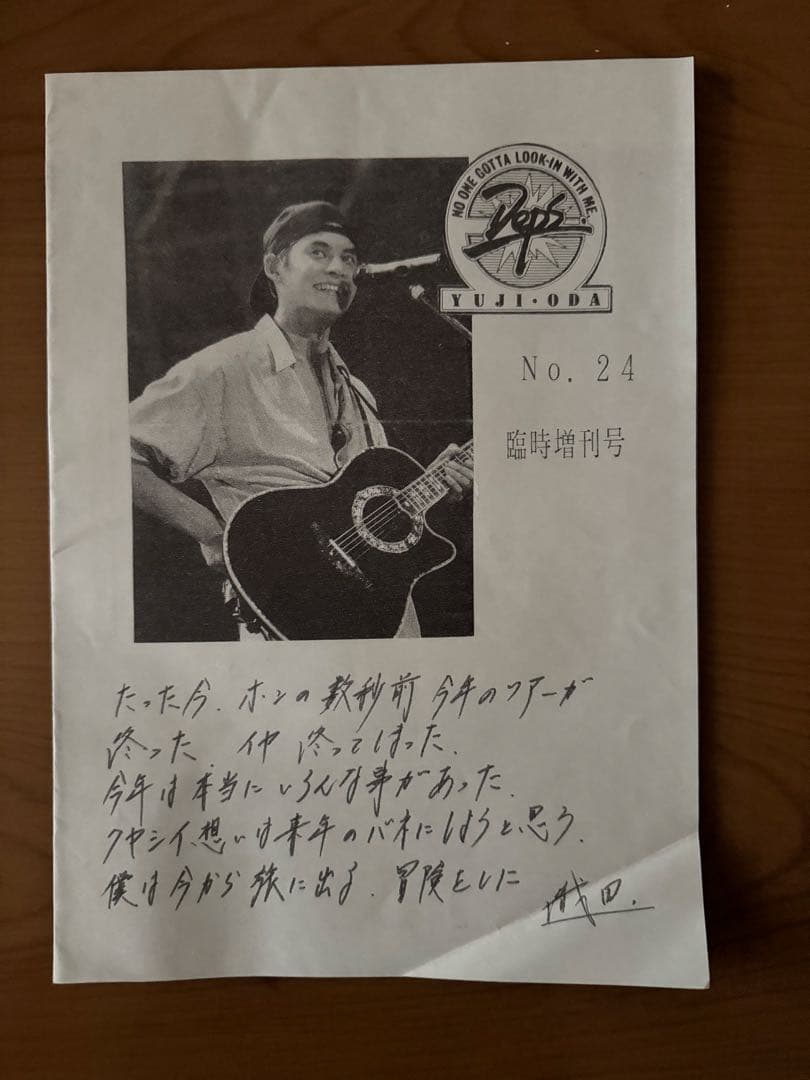 NO ONE GOTTA LOOK-IN WITH ME.
Deps.
YUJI・ODA
No. 24
臨時増刊号
たった今、ホンの数秒前 今年のツアーが
終った、イヤ 終ってしまった、
今年は本当にいろんな事があった、
クヤシイ想いは来年のバネにしようと思う、
僕は今から旅に出る、冒険をしに
織田.